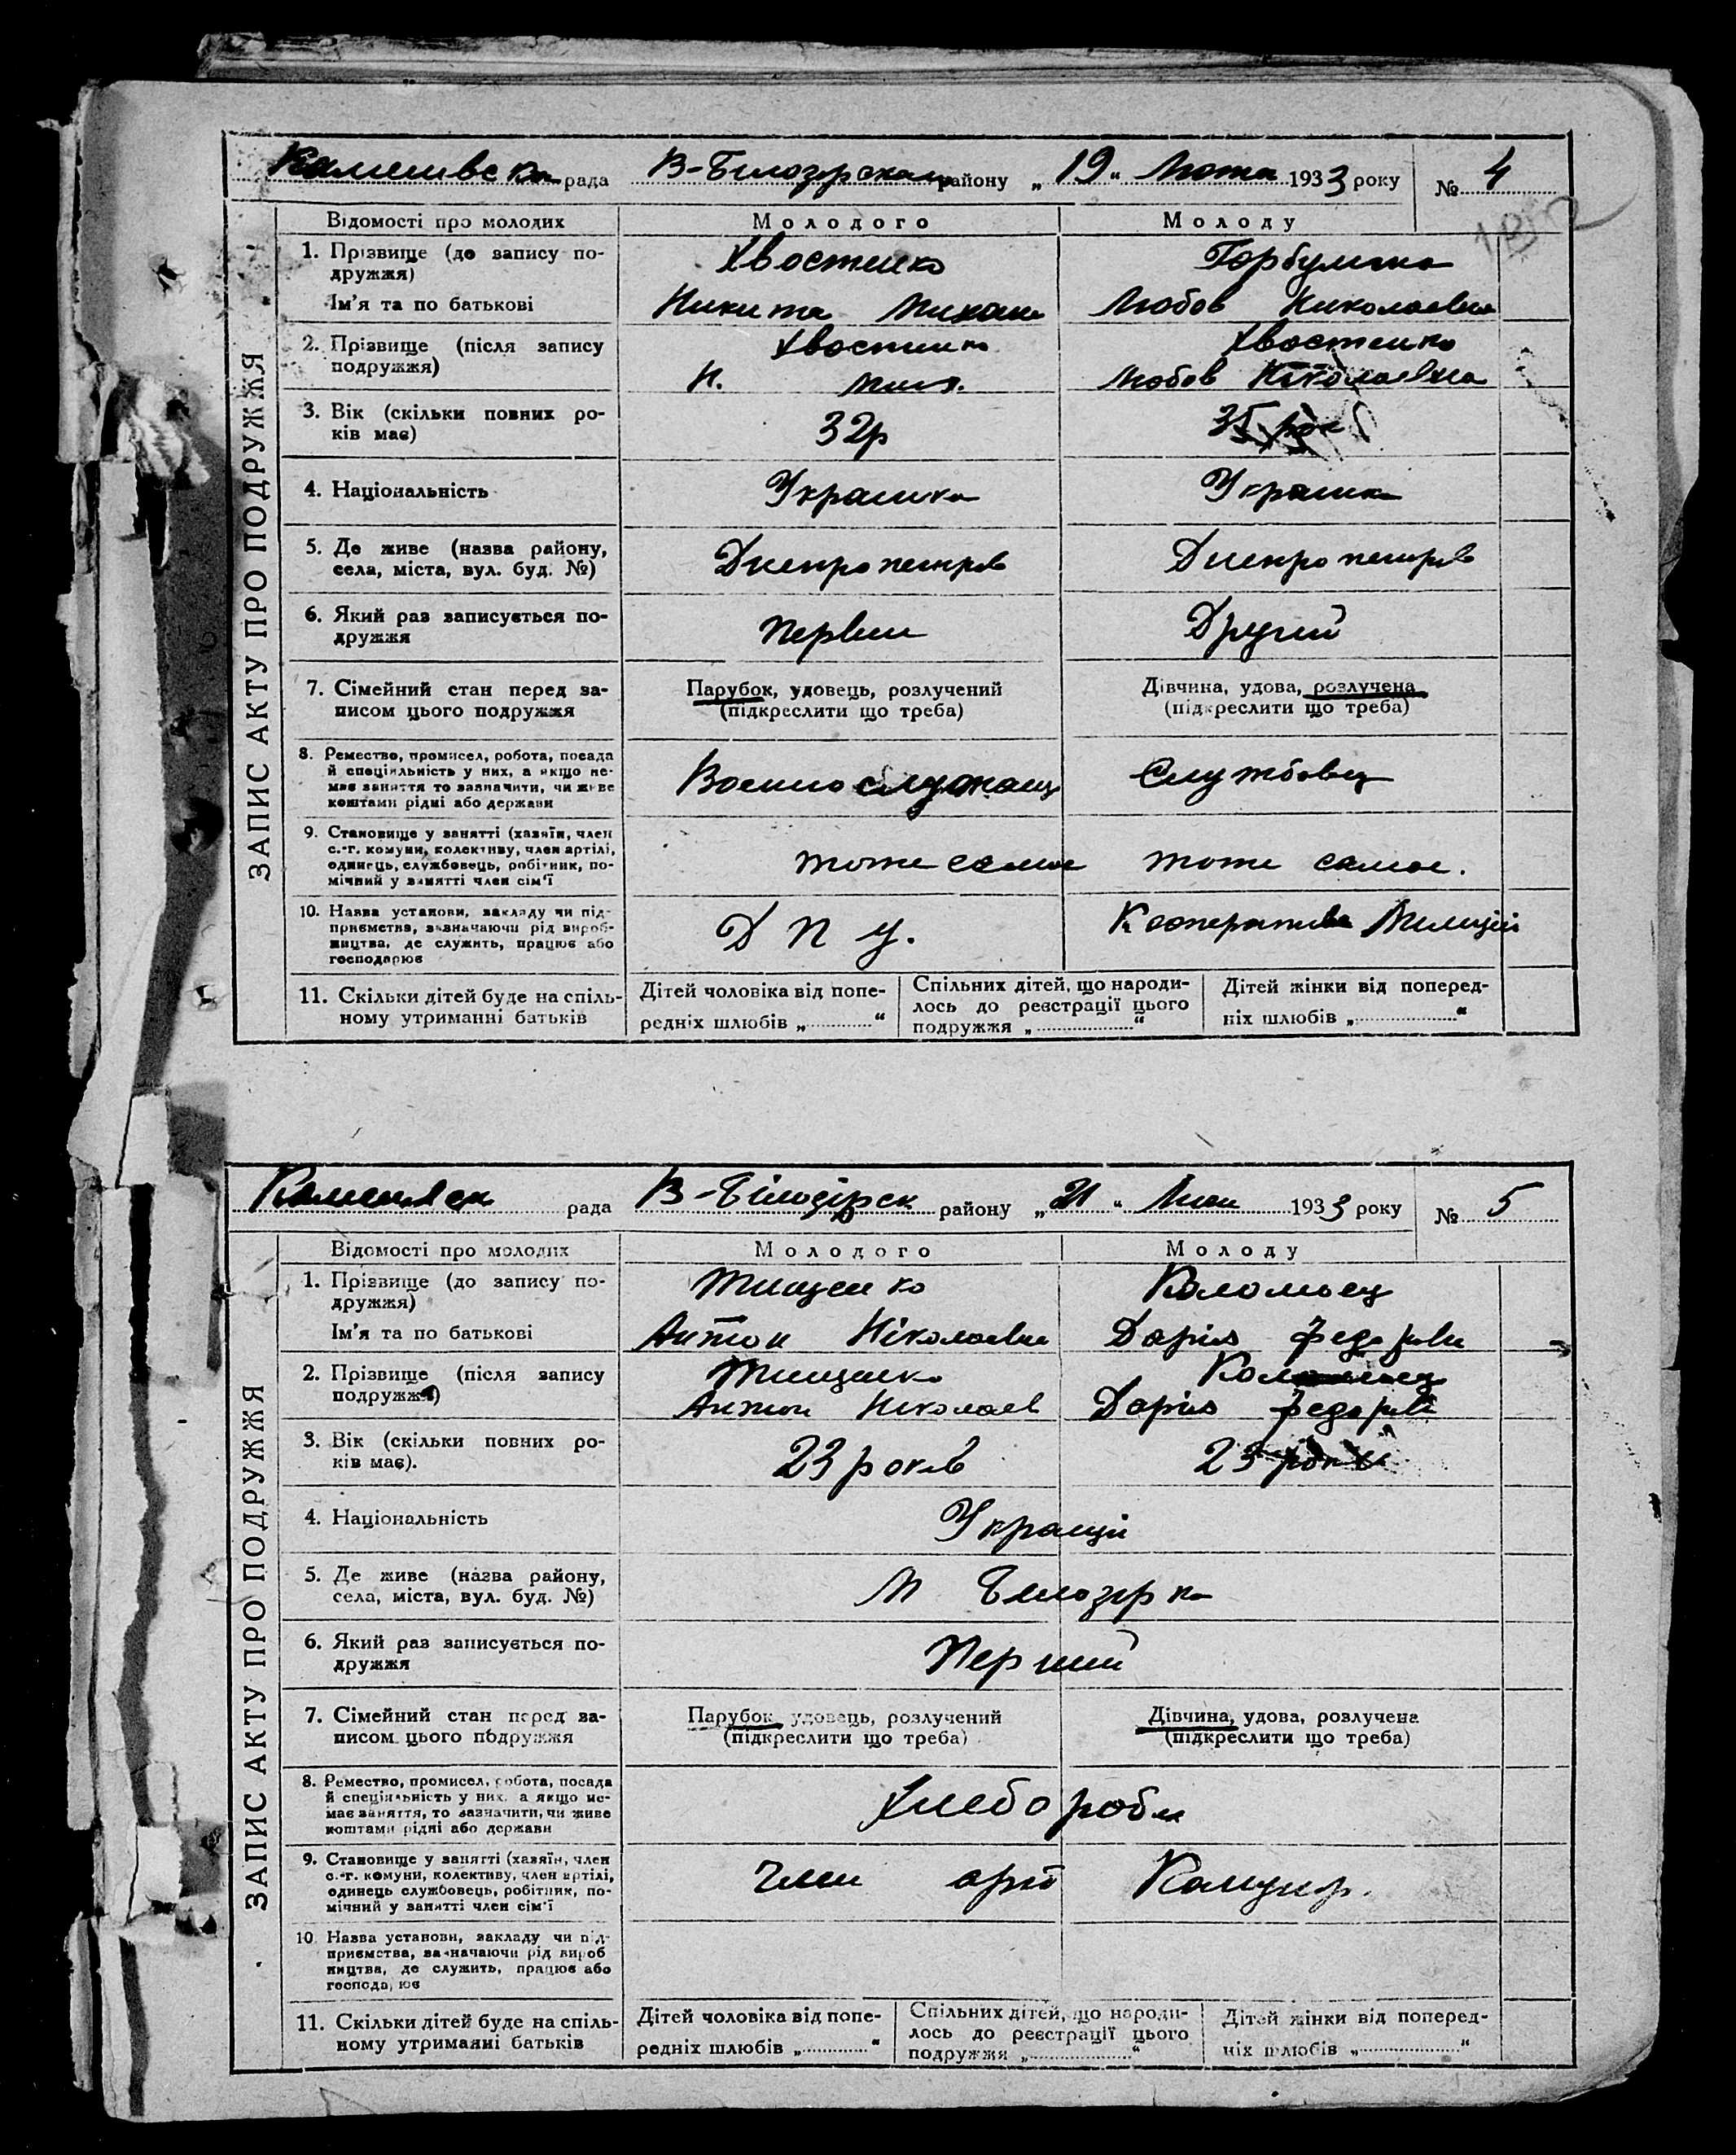 рада В-Білозорская району „19“ Лютого 1933 року № 4
ЗАПИС АКТУ ПРО ПОДРУЖЖЯ
Відомості про молодих Молодого Молоду
1. Прізвище (до запису по- Хвостенко
дружжя)
Ім'я та по батькові Никита Любов Николаевна
2. Прізвище (після запису Хвостенко Хвостенко
подружжя) Н. Любов Ніколаевна
3. Вік (скільки повних ро- 32р
ків має)
4. Національність
5. Де живе (назва району, Днепропетров Днепропетров
села, міста, вул. буд. №)
6. Який раз записується по- Первии Другий
дружжя
7. Сімейний стан перед за- Парубок, удовець, розлучений Дівчина, удова, розлучена
писом цього подружжя (підкреслити що треба) (підкреслити що треба)
8. Ремество, промисел, робота, посада Военнослужащ Службовец
й спеціяльність у них, а якщо не-
має заняття то зазначити, чи живе
коштами рідні або держави
9. Становище у занятті (хазяїн, член тоже самое тоже самое.
с.-г. комуни, колективу, член артілі,
одинець, службовець, робітник, по-
мічний у занятті член сім'ї
10. Назва установи, закладу чи під- Д П У. Кооператив Милиции
приємства, зазначаючи рід вироб-
ництва, де служить, працює або
господарює
11. Скільки дітей буде на спіль- Дітей чоловіка від попе- Спільних дітей, що народи- Дітей жінки від поперед-
ному утриманні батьків редніх шлюбів „ “ лось до реєстрації цього ніх шлюбів „ “
подружжя „ “
рада В-Білозірск району „21“ 1933 року № 5
ЗАПИС АКТУ ПРО ПОДРУЖЖЯ
Відомості про молодих Молодого Молоду
1. Прізвище (до запису по- Тищенко Коломоец
дружжя)
Ім'я та по батькові Антон Ніколаевич Дарія
2. Прізвище (після запису Тищенко
подружжя) Антон Николаев Дарія
3. Вік (скільки повних ро- 23 років 23
ків має).
4. Національність Украінці
5. Де живе (назва району, М Білозірка
села, міста, вул. буд. №)
6. Який раз записується по- Перший
дружжя
7. Сімейний стан перед за- Парубок, удовець, розлучений Дівчина, удова, розлучена
писом цього подружжя (підкреслити що треба) (підкреслити що треба)
8. Ремество, промисел, робота, посада Хлебороби
й спеціяльність у них, а якщо не-
має заняття, то зазначити, чи живе
коштами рідні або держави
9. Становище у занятті (хазяїн, член член арт
с.-г. комуни, колективу, член артілі,
одинець службовець, робітник, по-
мічний у занятті член сім'ї
10 Назва установи, закладу чи під-
приємства, зазначаючи рід вироб
ництва, де служить, працює або
господарює
11. Скільки дітей буде на спіль- Дітей чоловіка від попе- Спільних дітей, що народи- Дітей жінки від поперед-
ному утриманні батьків редніх шлюбів „ “ лось до реєстрації цього ніх шлюбів „ “
подружжя „ “